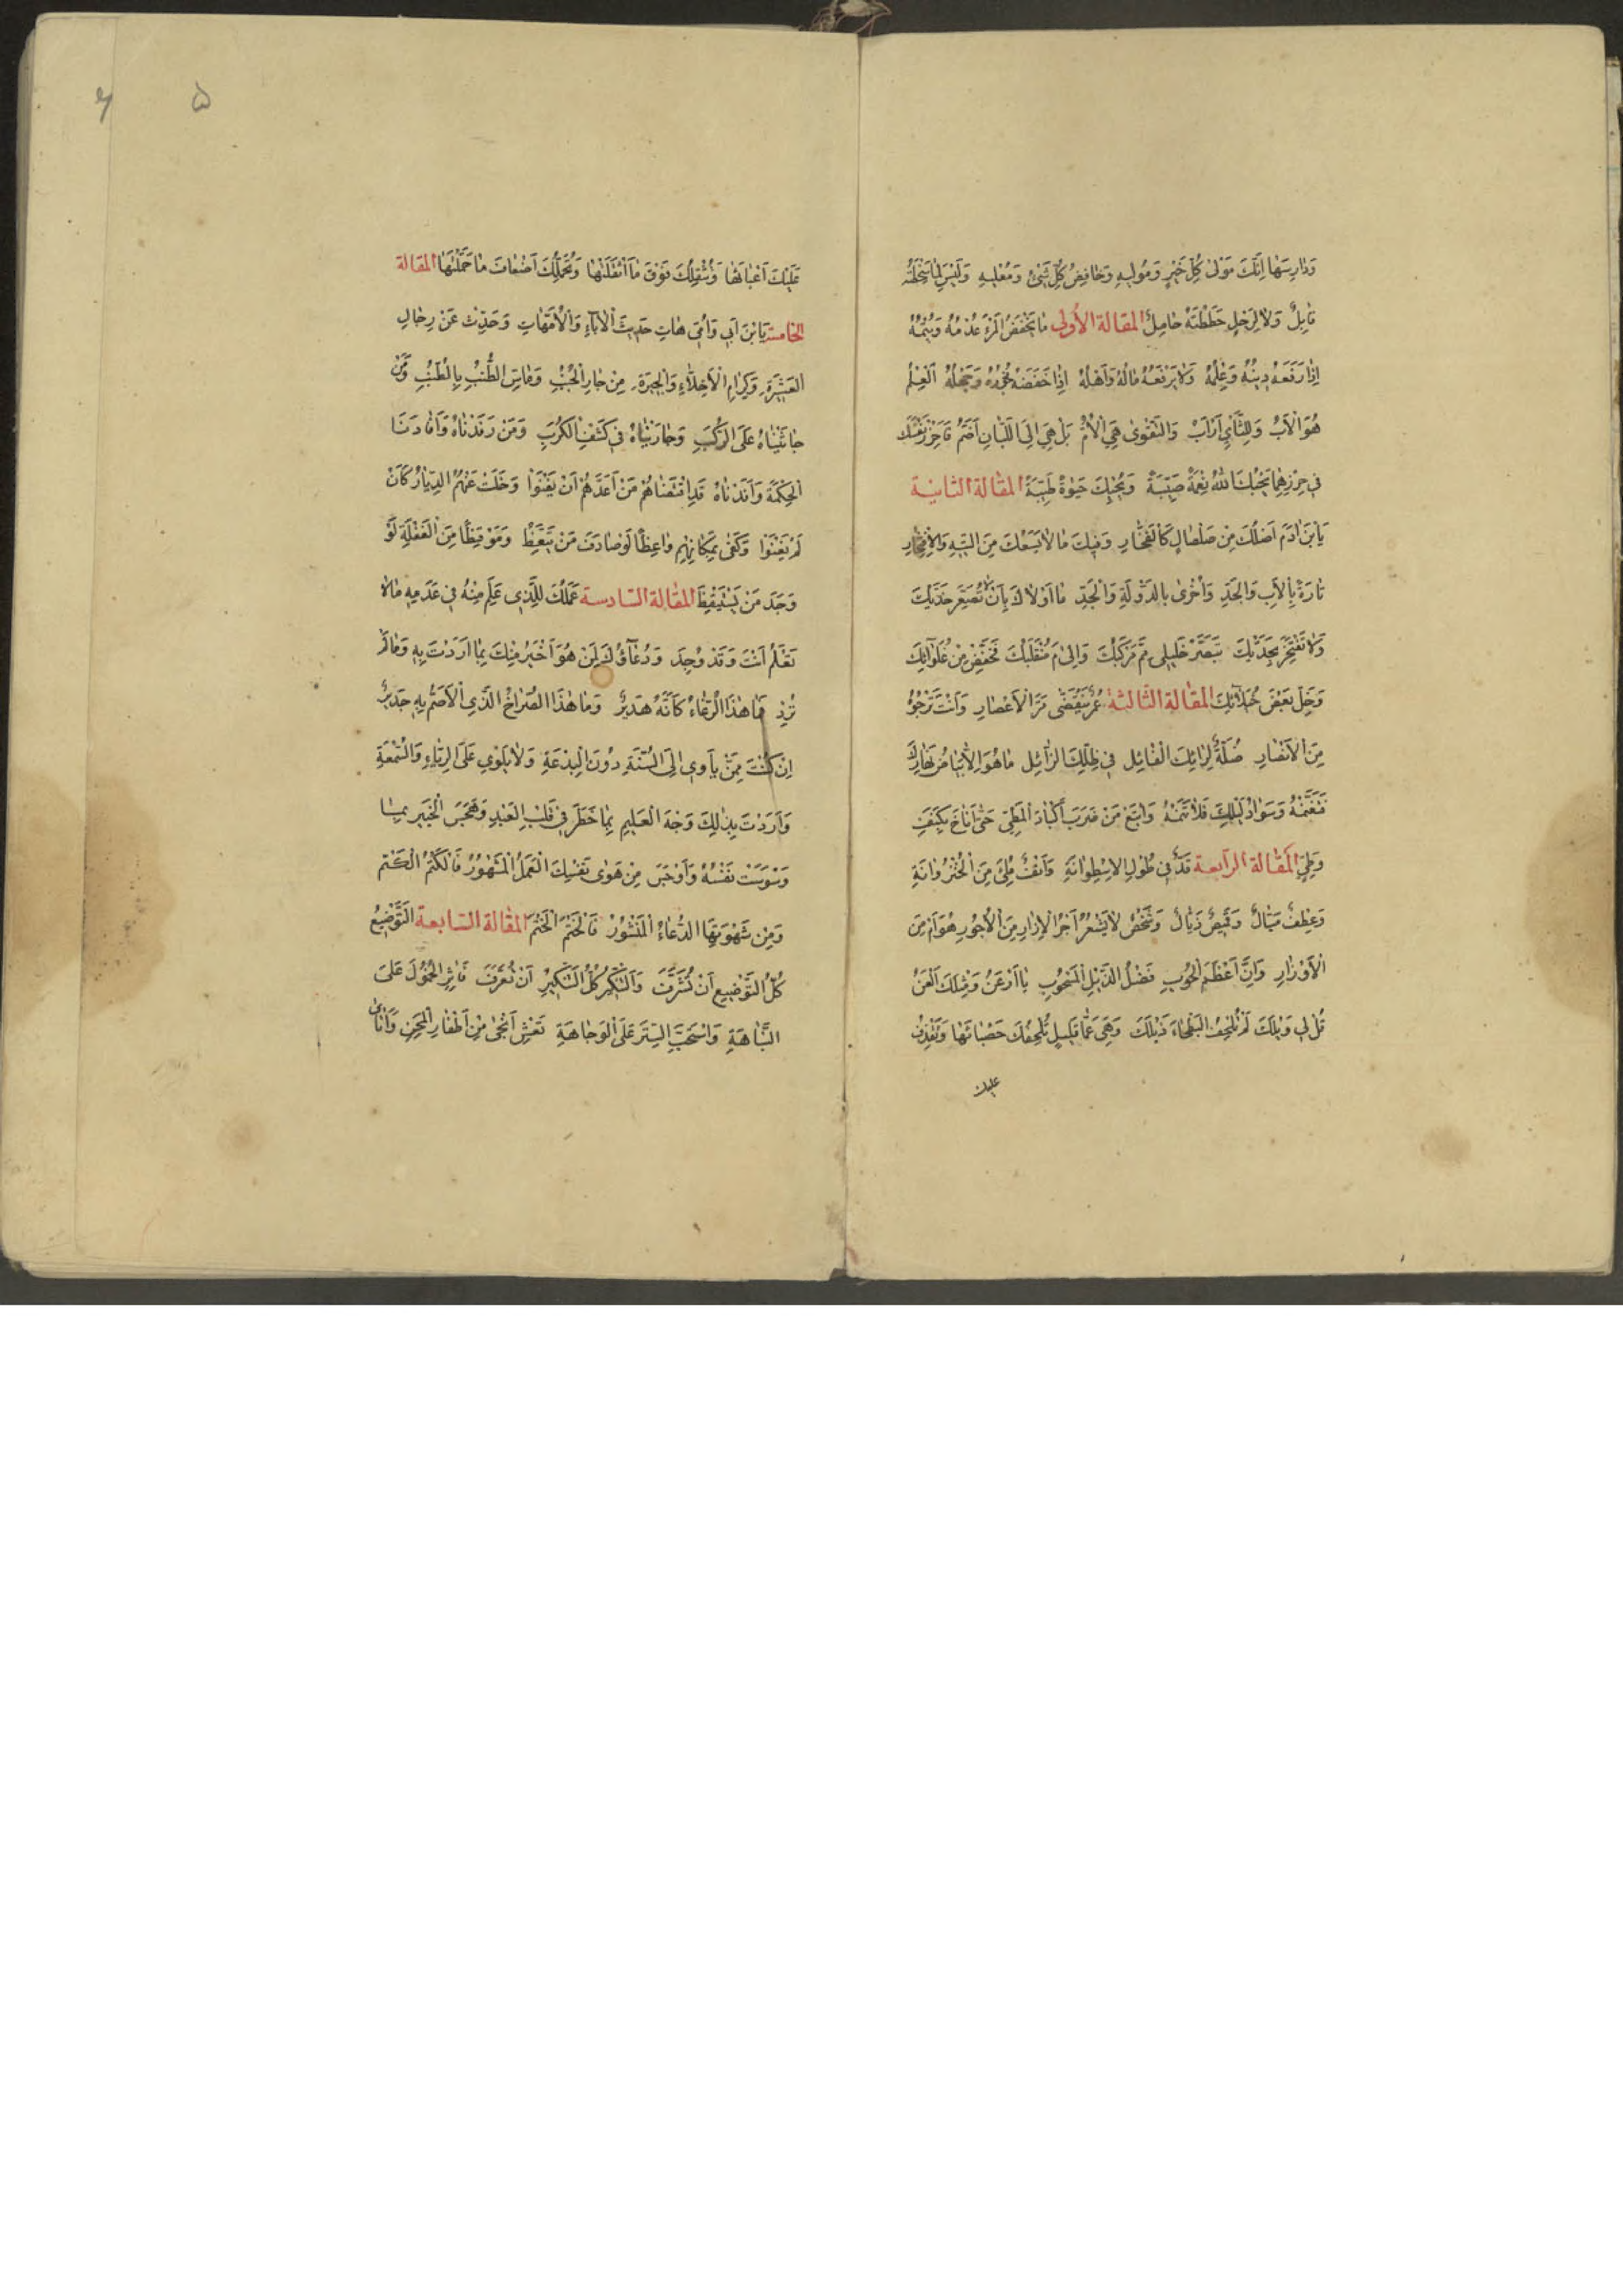 وَدَارِسَهَا اِنَّكَ مَوْلىٰ كُلِّ خَيْرٍ وَمُولِيهِ وَخَافِضُ كُلِّ شَيْءٍ وَمُعْلِيهِ وَلَيْسَ لِمَا سَخِطْتَهُ
قَابِلٌ وَلَا لِرَحْلٍ حَطَطْتَهُ حَامِلٌ المقالة الأولى مَا يَخْفِضُ الْمَرْءَ عُدْمُهُ وَيُتْمُهُ
اِذَا رَفَعَهُ دِينُهُ وَعِلْمُهُ وَلَا يَرْفَعُهُ مَالُهُ وَأَهْلُهُ اِذَا خَفَضَهُ فُجُورُهُ وَجَهْلُهُ اَلْعِلْمُ
هُوَ الْأَبُ وَلِلثَّأْيِ أَرْأَبُ وَالتَّقْوىٰ هِيَ الْأُمُّ بَلْ هِيَ اِلَى اللَّبَانِ أَضَمُّ فَاَحْرِزْ نَفْسَكَ
فِي حِرْزِهِمَا يُحْيِكَ اللهُ نِعْمَةً صَيِّبَةً وَيُحْيِكَ حَيٰوةً طَيِّبَةً المقالة الثانية
يَا بْنَ اٰدَمَ اَصْلُكَ مِنْ صَلْصَالٍ كَالْفَخَّارِ وَفِيكَ مَا لَا يَسَعُكَ مِنَ التِّيهِ وَالْاِفْتِخَارِ
تَارَةً بِالْأَبِ وَالْجَدِّ وَاُخْرىٰ بِالدَّوْلَةِ وَالْجَدِّ مَا اَوْلَاكَ بِاَنْ لَا تُصَعِّرَ خَدَّيْكَ
وَلَا تَفْتَخِرَ بِجَدَّيْكَ تَبَصَّرْ خَلِيلِي مِمَّ مَرْكَبُكَ وَاِلىٰ مَ مُنْقَلَبُكَ فَخَفِّضْ مِنْ غُلَوَائِكَ
وَخَلِّ بَعْضَ خُيَلَائِكَ المقالة الثالثة عُمْرٌ يَنْقَضِي مَرَّ الْاَعْصَارِ وَاَنْتَ تَرْجُو
مِنَ الْاَنْصَارِ ضِلَّةٌ لِرَائِكَ الْفَائِلِ فِي ظِلِّكَ الزَّائِلِ مَا هُوَ اِلَّا بَيَاضُ نَهَارِكَ
فَتَغَنَّمْهُ وَسَوَادُ لَيْلِكَ فَلَا تَنَمْهُ وَاتَّبِعْ مَنْ ضَرَبَ اَكْبَادَ الْمَطِيِّ حَتّىٰ اَنَاخَ بِكَنَفِ
وَطِيٍّ المقالة الرابعة قَدٌّ فِي طُولِ الْاِسْطِوَانَةِ وَاَنْفٌ مُلِئَ مِنَ الْخُنْزُوَانَةِ
وَعِطْفٌ مَيَّالٌ وَقَمِيصٌ ذَيَّالٌ وَشَخْصٌ لَا يَشْعُرُ اَجَرُّ الْاِزَارِ مِنَ الْأُجُورِ هُوَ اَمْ مِنَ
الْأَوْزَارِ وَاِنَّ اَعْظَمَ الْحُوبِ فَضْلُ الذَّيْلِ الْمَسْحُوبِ يَا اَرْعَنُ وَمِثْلُكَ اَلْعَنُ
قُلْ لِي وَيْلَكَ لَمْ تُلْحِفُ الْبَطْحَاءَ ذَيْلَكَ وَهِيَ عَمَّا قَلِيلٍ تُلْحِفُكَ حَصْبَائَهَا وَتَقْذِفُ
عليك
عَلَيْكَ اَعْبَائَهَا وَتُثْقِلُكَ فَوْقَ مَا اَثْقَلْتَهَا وَتُحَمِّلُكَ اَضْعَافَ مَا حَمَّلْتَهَا المقالة
الخامسة يَا بْنَ اَبِي وَاُمِّي هَاتِ حَدِيثَ الْاٰبَاءِ وَالْاُمَّهَاتِ وَحَدِّثْ عَنْ رِجَالِ
الْعَشِيرَةِ وَكِرَامِ الْاَخِلَّاءِ وَالْجِيرَةِ مِنْ جَارِ الْجُنُبِ وَمَاسِّ الطُّنُبِ بِالطُّنُبِ وَمَنْ
جَاثَيْنَاهُ عَلَى الرُّكَبِ وَجَارَيْنَاهُ فِي كَشْفِ الْكُرَبِ وَمَنْ رَفَدْنَاهُ وَاَفَادَنَا
الْحِكْمَةَ وَاَفَدْنَاهُ قَدْ اقْتَضَاهُمْ مَنْ اَعَدَّهُمْ اَنْ يَفْنَوْا وَخَلَتْ عَنْهُمُ الدِّيَارُ كَاَنْ
لَمْ يَغْنَوْا وَكَفىٰ بِمَكَانِهِمْ وَاعِظًا لَوْ صَادَفَ مَنْ يَتَّعِظُ وَمُوقِظًا مِنَ الْغَفْلَةِ لَوْ
وَجَدَ مَنْ يَسْتَيْقِظُ المقالة السادسة عَمَلُكَ لِلَّذِي عَلِمَ مِنْهُ فِي عَدَمِهِ مَالَا
تَعْلَمُ اَنْتَ وَقَدْ وُجِدَ وَدُعَاؤُكَ لِمَنْ هُوَ اَخْبَرُ مِنْكَ بِمَا اَرَدْتَ بِهِ وَمَا لَمْ
تُرِدْ فَمَا هٰذَا الرُّغَاءُ كَاَنَّهُ هَدِيرٌ وَمَا هٰذَا الصُّرَاخُ الَّذِي الْاَصَمُّ بِهِ جَدِيرٌ
اِنْ كُنْتَ مِمَّنْ يَأْوِي اِلَى السُّنَّةِ دُونَ الْبِدْعَةِ وَلَا يَلْوِي عَلَى الرِّيَاءِ وَالسُّمْعَةِ
وَاَرَدْتَ بِذٰلِكَ وَجْهَ الْعَلِيمِ بِمَا خَطَرَ فِي قَلْبِ الْعَبْدِ وَهَجَسَ الْخَبِيرِ بِمَا
وَسْوَسَتْ نَفْسُهُ وَاَوْجَسَ مِنْ هَوىٰ نَفْسِكَ الْعَمَلُ الْمَشْهُورُ فَالْكَتْمَ الْكَتْمَ
وَمِنْ شَهْوَتِهَا الدُّعَاءُ الْمَنْشُورُ فَالْخَتْمَ الْخَتْمَ المقالة السابعة التَّوْضِيعُ
كُلُّ التَّوْضِيعِ اَنْ تُشَرَّفَ وَالتَّنْكِيرُ كُلُّ التَّنْكِيرِ اَنْ تُعَرَّفَ فَاٰثِرِ الْخُمُولَ عَلىَ
النَّبَاهَةِ وَاسْتَحِبَّ السِّتْرَ عَلَى الْوَجَاهَةِ تَعِشْ اَنْجىٰ مِنْ اَظْفَارِ الْمِحَنِ وَاَنْأىٰ